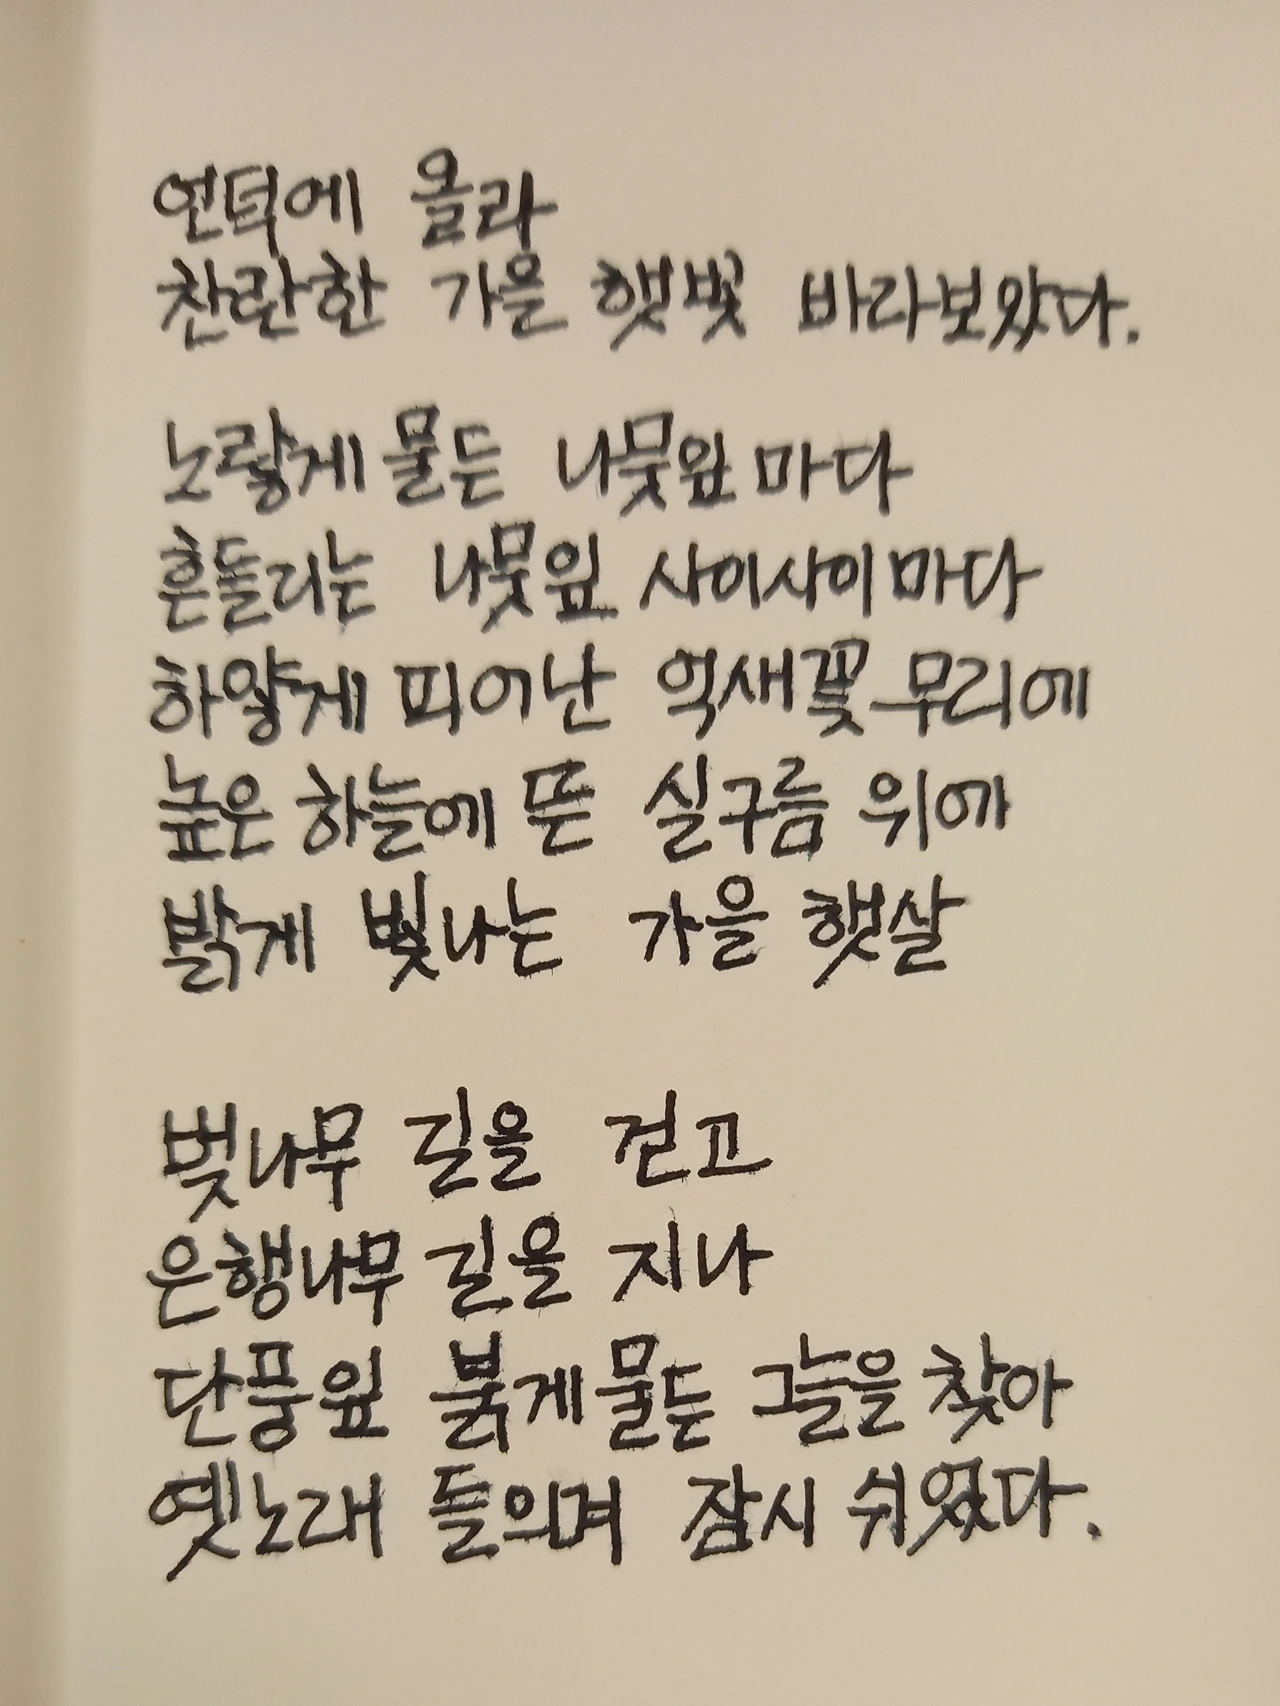 언덕에 올라
찬란한 가을 햇빛 바라보았다.
노랗게 물든 나뭇잎마다
흔들리는 나뭇잎 사이사이마다
하얗게 피어난 억새꽃 무리에
높은 하늘에 뜬 실구름 위에
밝게 빛나는 가을 햇살
벚나무 길을 걷고
은행나무 길을 지나
단풍잎 붉게 물든 그늘을 찾아
옛노래 들으며 잠시 쉬었다.